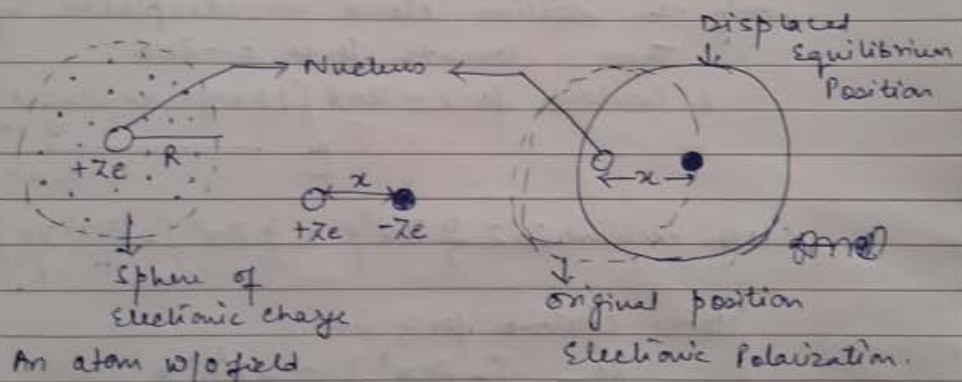 Displaced
Equilibrium
Position
Nucleus
+Ze
R
x
+Ze -Ze
x
Sphere of
Electronic charge
original position
An atom w/o field
Electronic Polarization.